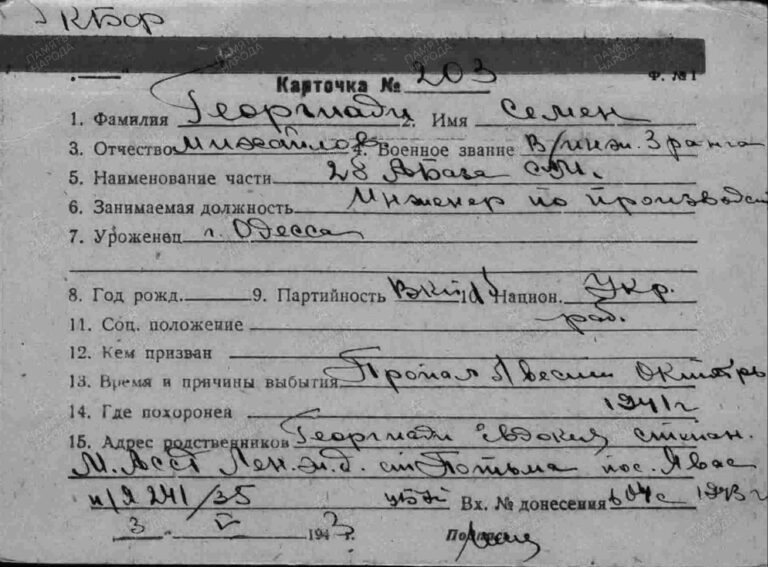 КБФ
Карточка № 203
Ф. №1
1. Фамилия Георгиади 2. Имя Семен
3. Отчество Михайлов 4. Военное звание В/инж. 3 ранга
5. Наименование части 28 АБаза
6. Занимаемая должность Инженер по производст
7. Уроженец г. Одесса
8. Год рожд. 9. Партийность ВКПб 10. Национ. Укр.
11. Соц. положение раб.
12. Кем призван
13. Время и причины выбытия Пропал без вести Октябрь
14. Где похоронен 1941 г
15. Адрес родственников Георгиади Евдокия степан.
М. АССР Лен. ж.д. ст Потьма пос. Явас
п/я 241/35 Вх. № донесения 1943 г
3 V 1943 г.
Подпись
ПАМЯТЬ НАРОДА